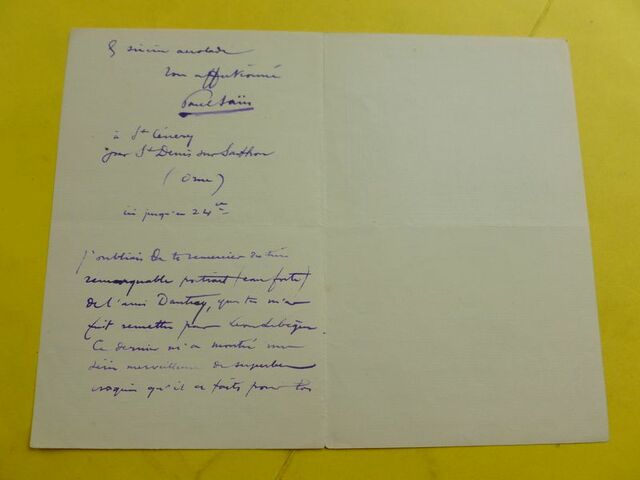 & sincère accolade
ton affectionné
Paul Saïn
à St Cénery
par St Denis sur Sarthon
(Orne)
ici jusqu'au 24 
J'oubliais de te remercier du très
remarquable portrait (eau forte)
de l'ami Dautray, que tu m'as
fait remettre par Léon Lebègue.
Ce dernier m'a montré une
série merveilleuse de superbes
croquis qu'il a faits pour ton